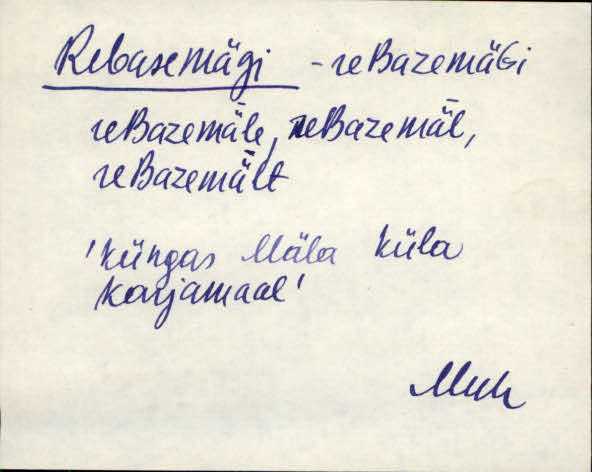 Rebasemägi - reBazemäGi
reBazemǟle, reBazemǟl,
reBazemǟlt
'küngas Mäla küla
karjamaal'
Muh